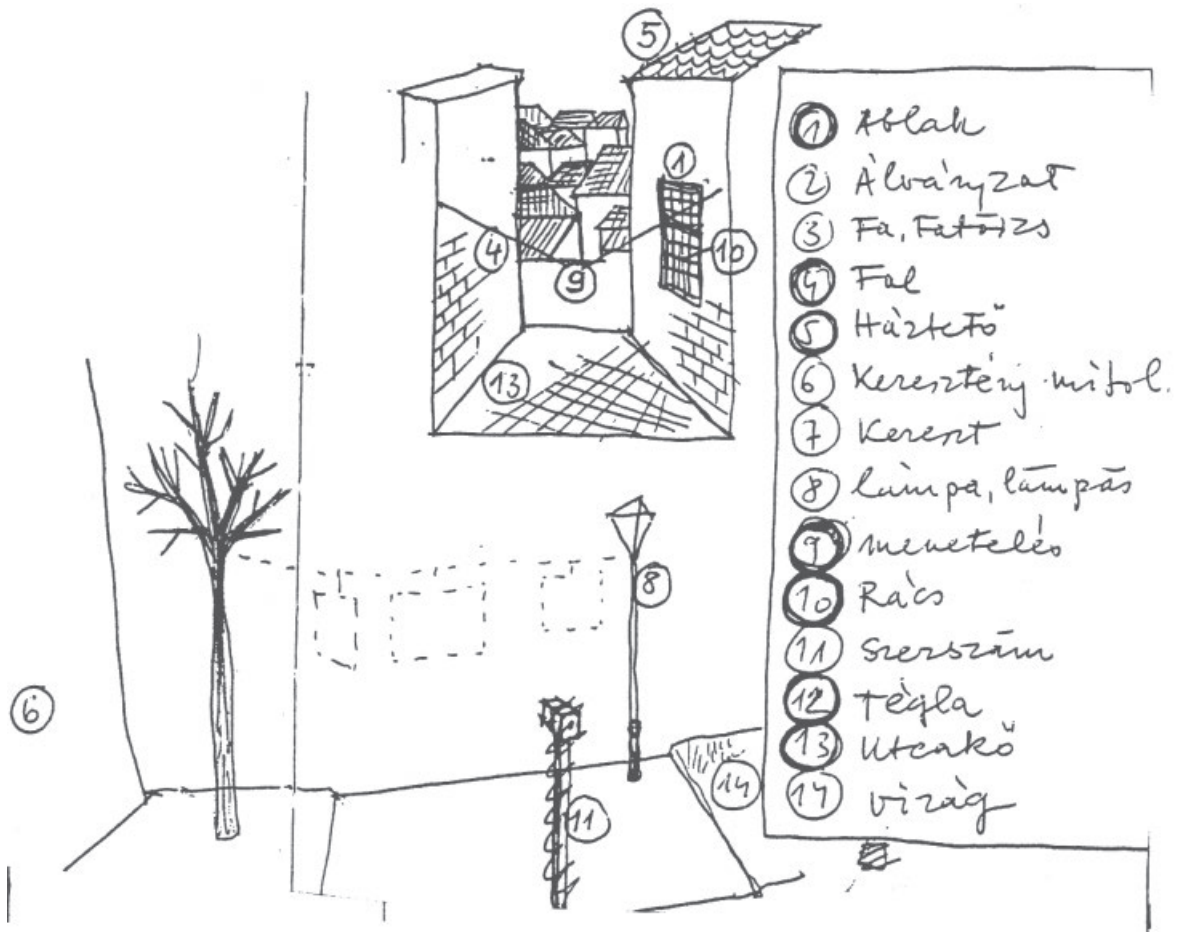 5
1
4
10
9
13
8
6
11
14
1 Ablak
2 Álványzat
3 Fa, Fatörzs
4 Fal
5 Háztető
6 Keresztény mitol.
7 Kereszt
8 lámpa, lámpás
9 menetelés
10 Rács
11 Szerszám
12 Tégla
13 Utcakő
14 virág